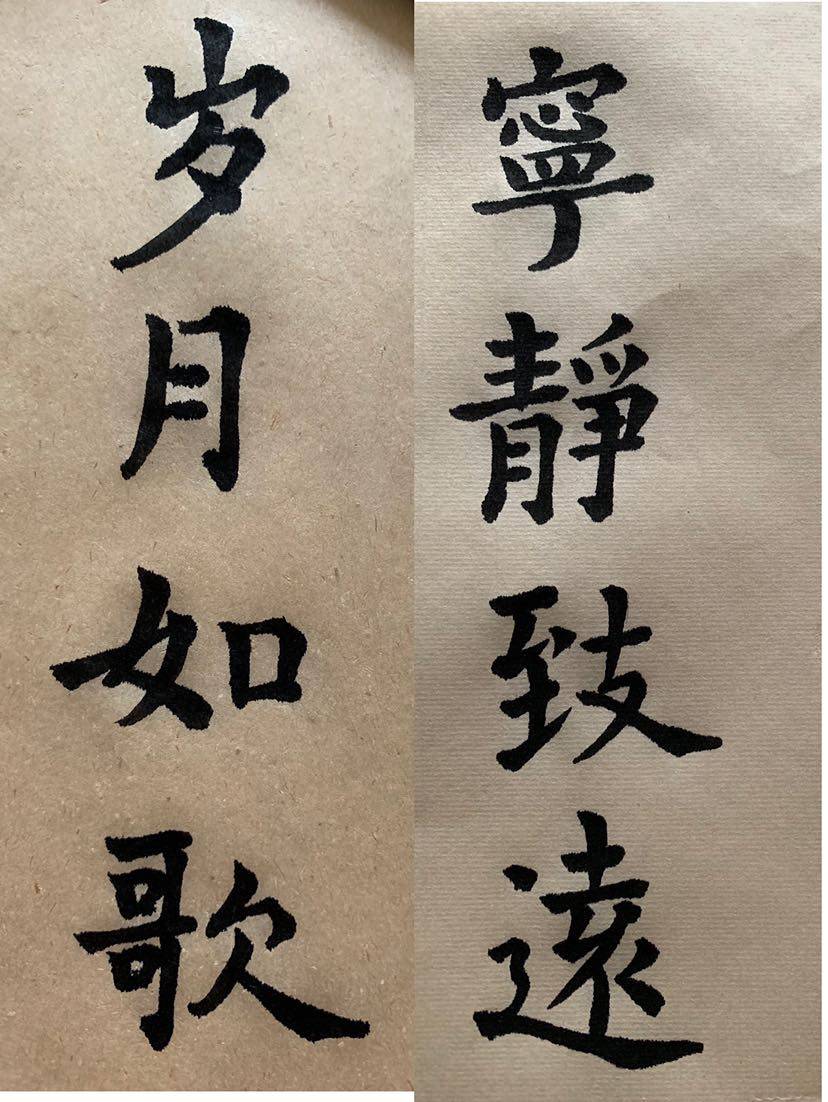 岁月如歌
寧靜致遠